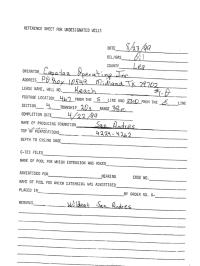 REFERENCE SHEET FOR UNDESIGNATED WELLS
DATE 5/13/99
OIL/GAS Oil
COUNTY Lea
OPERATOR Capataz Operating Inc
ADDRESS PO Box 10549 Midland Tx 79702
LEASE NAME, WELL NO. #1-D
FOOTAGE LOCATION 467 FROM THE S LINE AND FROM THE E LINE
SECTION 4 TOWNSHIP 20s RANGE 38e
COMPLETION DATE 4/22/99
NAME OF PRODUCING FORMATION San Andres
TOP OF PERFORATIONS 4224-4262
DEPTH TO CASING SHOE
C-123 FILED
NAME OF POOL FOR WHICH EXTENSION WAS ASKED
ADVERTISED FOR HEARING CASE NO.
NAME OF POOL FOR WHICH EXTENSION WAS ADVERTISED
PLACED IN BY ORDER NO. R-
REMARKS Wildcat San Andres